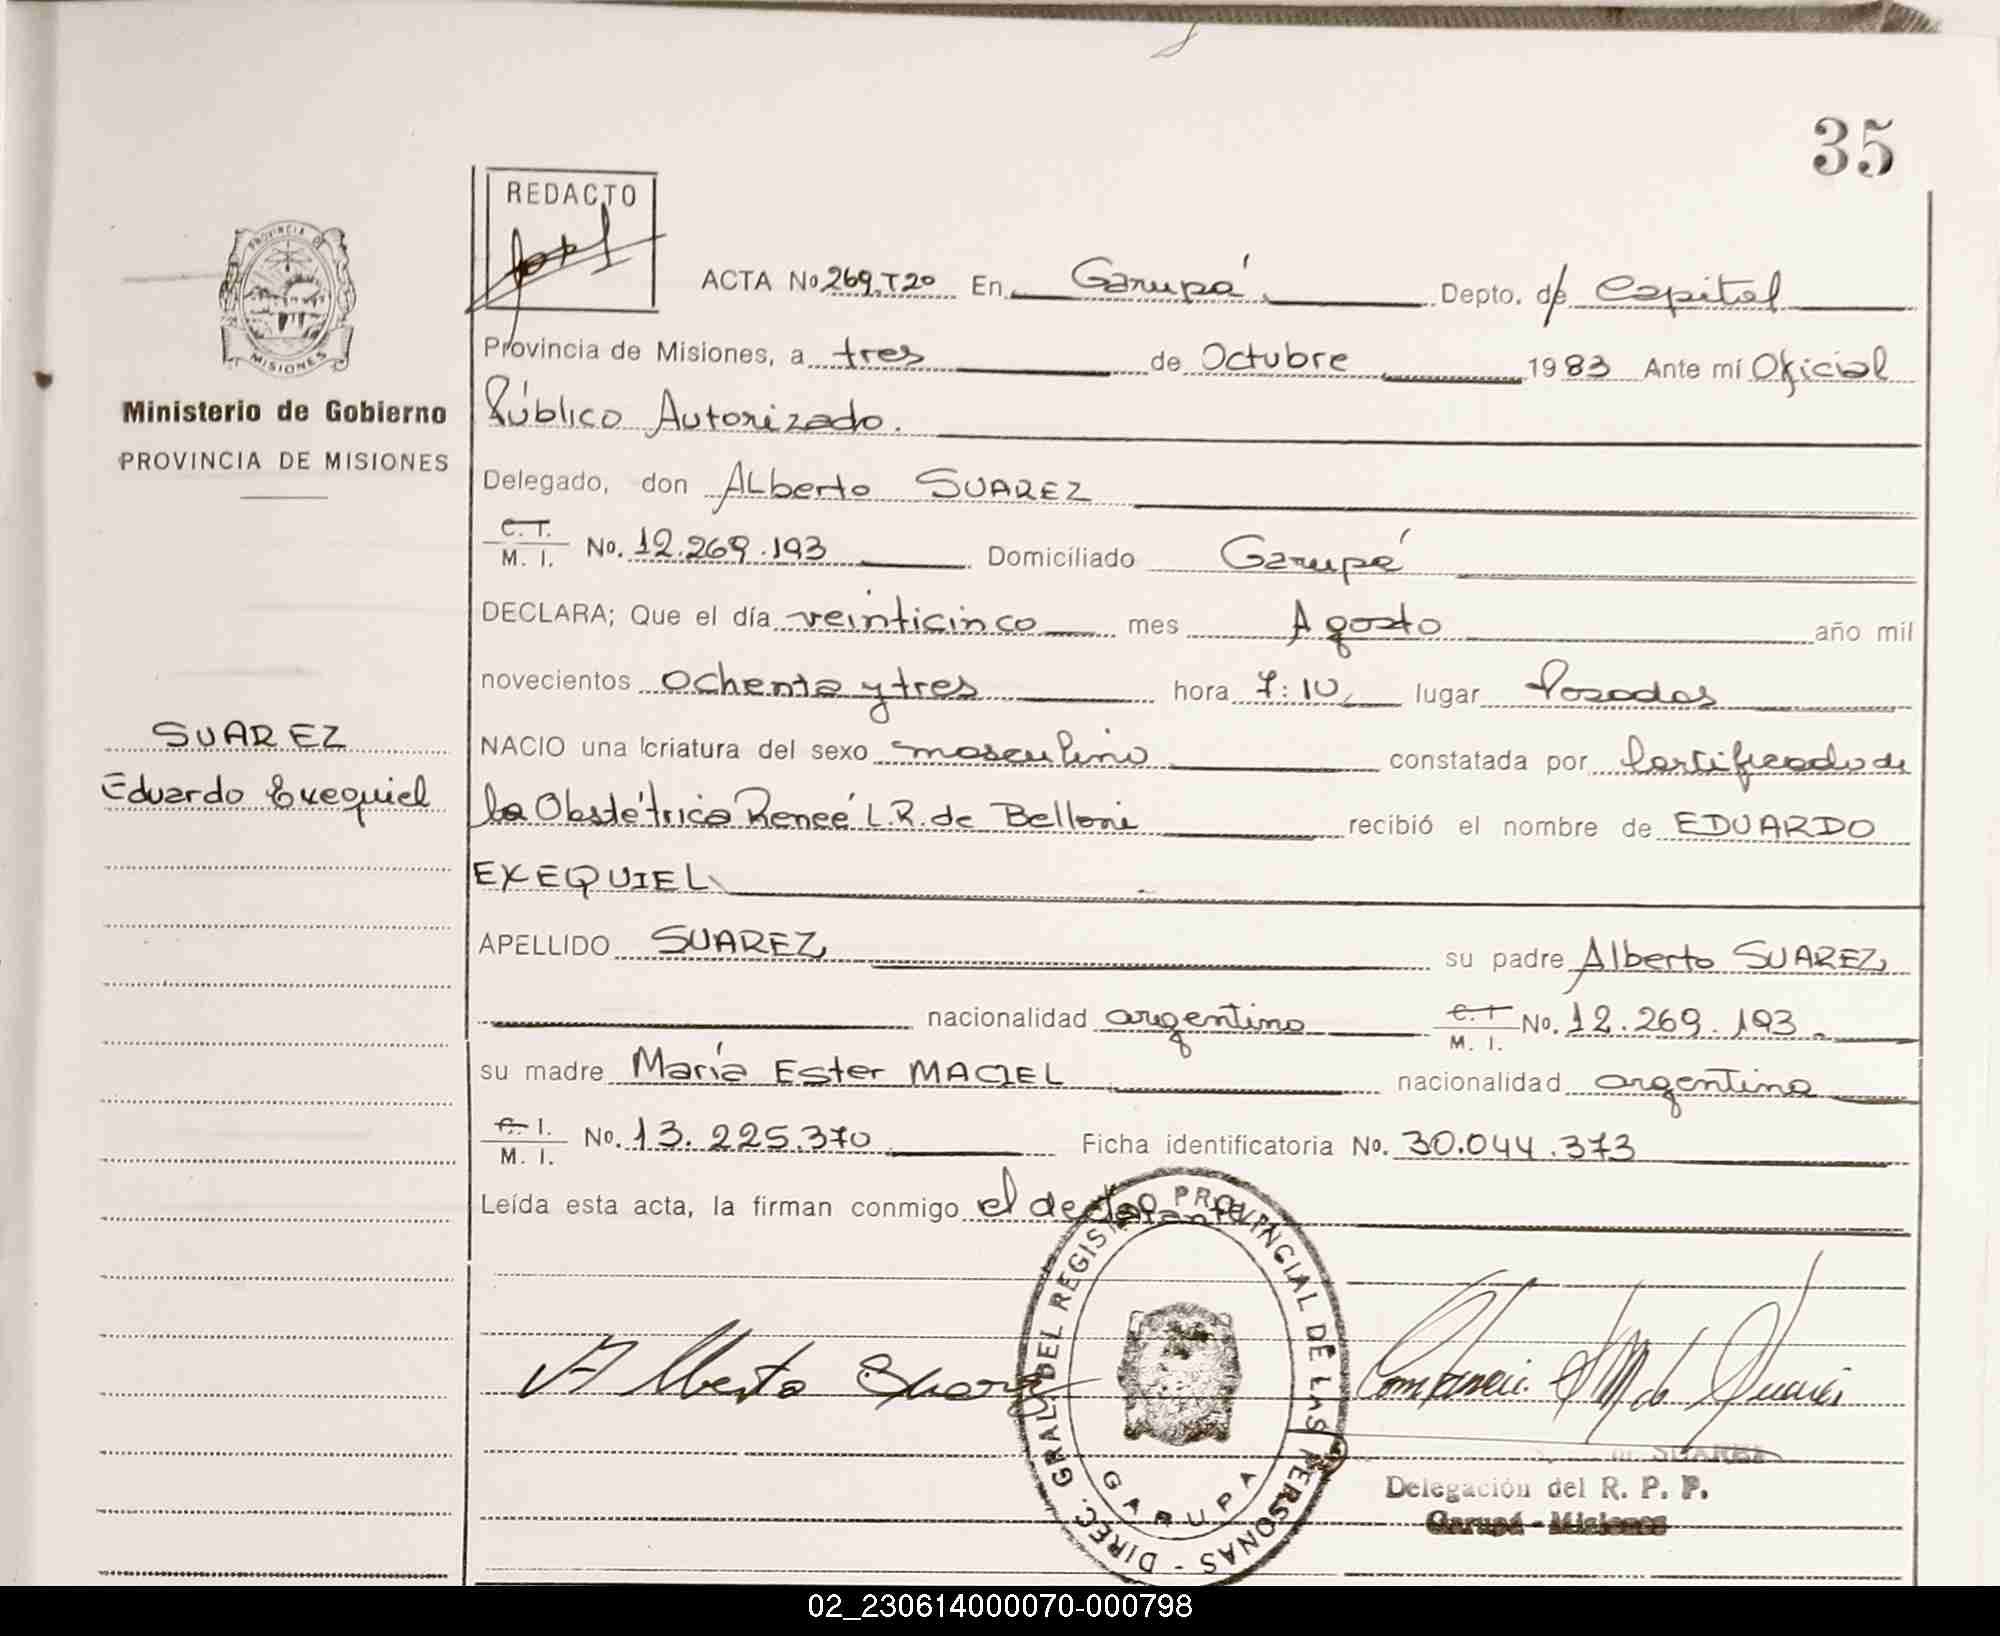 35
REDACTO
ACTA No 269.T20 En Garupá Depto. de Capital
PROVINCIA DE
MISIONES
Provincia de Misiones, a tres de Octubre 1983 Ante mí Oficial
Ministerio de Gobierno
Público Autorizado.
PROVINCIA DE MISIONES
Delegado, don Alberto SUAREZ
C. I.
M. I. No. 12.269.193 Domiciliado Garupá
DECLARA; Que el día veinticinco mes Agosto año mil
novecientos ochenta y tres hora 7:10 lugar Posadas
SUAREZ
NACIO una criatura del sexo masculino constatada por Certificado de
Eduardo Exequiel
la Obstétrica Reneé L.R. de Belloni recibió el nombre de EDUARDO
EXEQUIEL
APELLIDO SUAREZ su padre Alberto SUAREZ
nacionalidad argentino C. I.
M. I. No. 12.269.193
su madre María Ester MACIEL nacionalidad argentina
C. I.
M. I. No. 13.225.370 Ficha identificatoria No. 30.044.373
Leída esta acta, la firman conmigo el declarante
DIREC. GRAL. DEL REGISTRO PROVINCIAL DE LAS PERSONAS -
GARUPA
Alberto Suarez
de SUAREZ
Delegación del R. P. P.
Garupá - Misiones
02_230614000070-000798